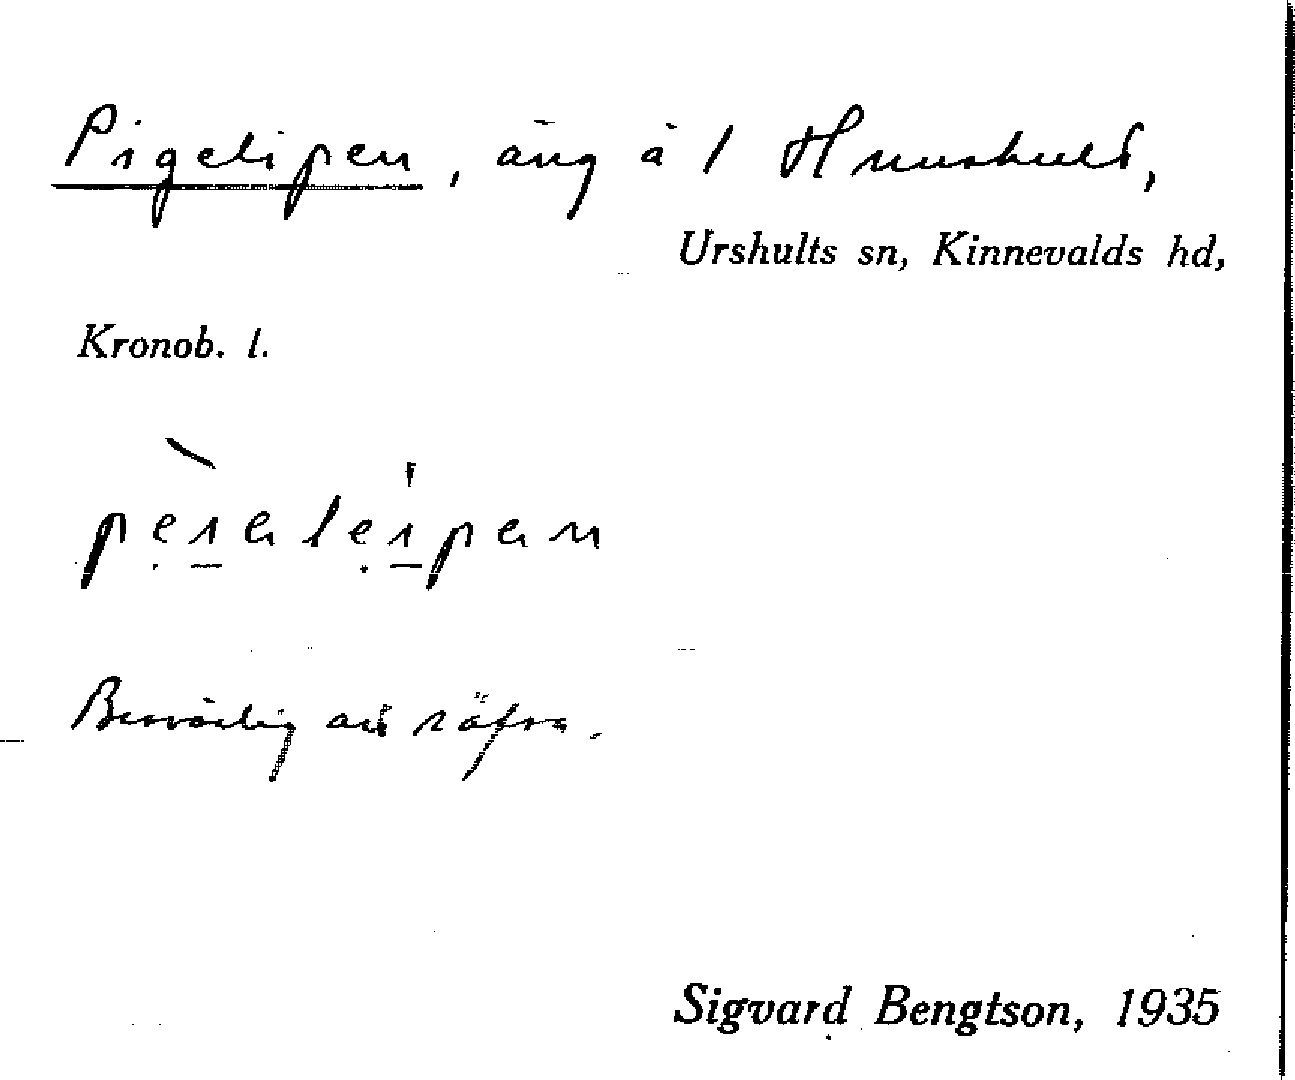 Pigelipen, äng å 1 Hunshult,
Urshults sn, Kinnevalds hd,
Kronob. l.
pèıaleıpan
Besvärlig att räfsa.
Sigvard Bengtson, 1935